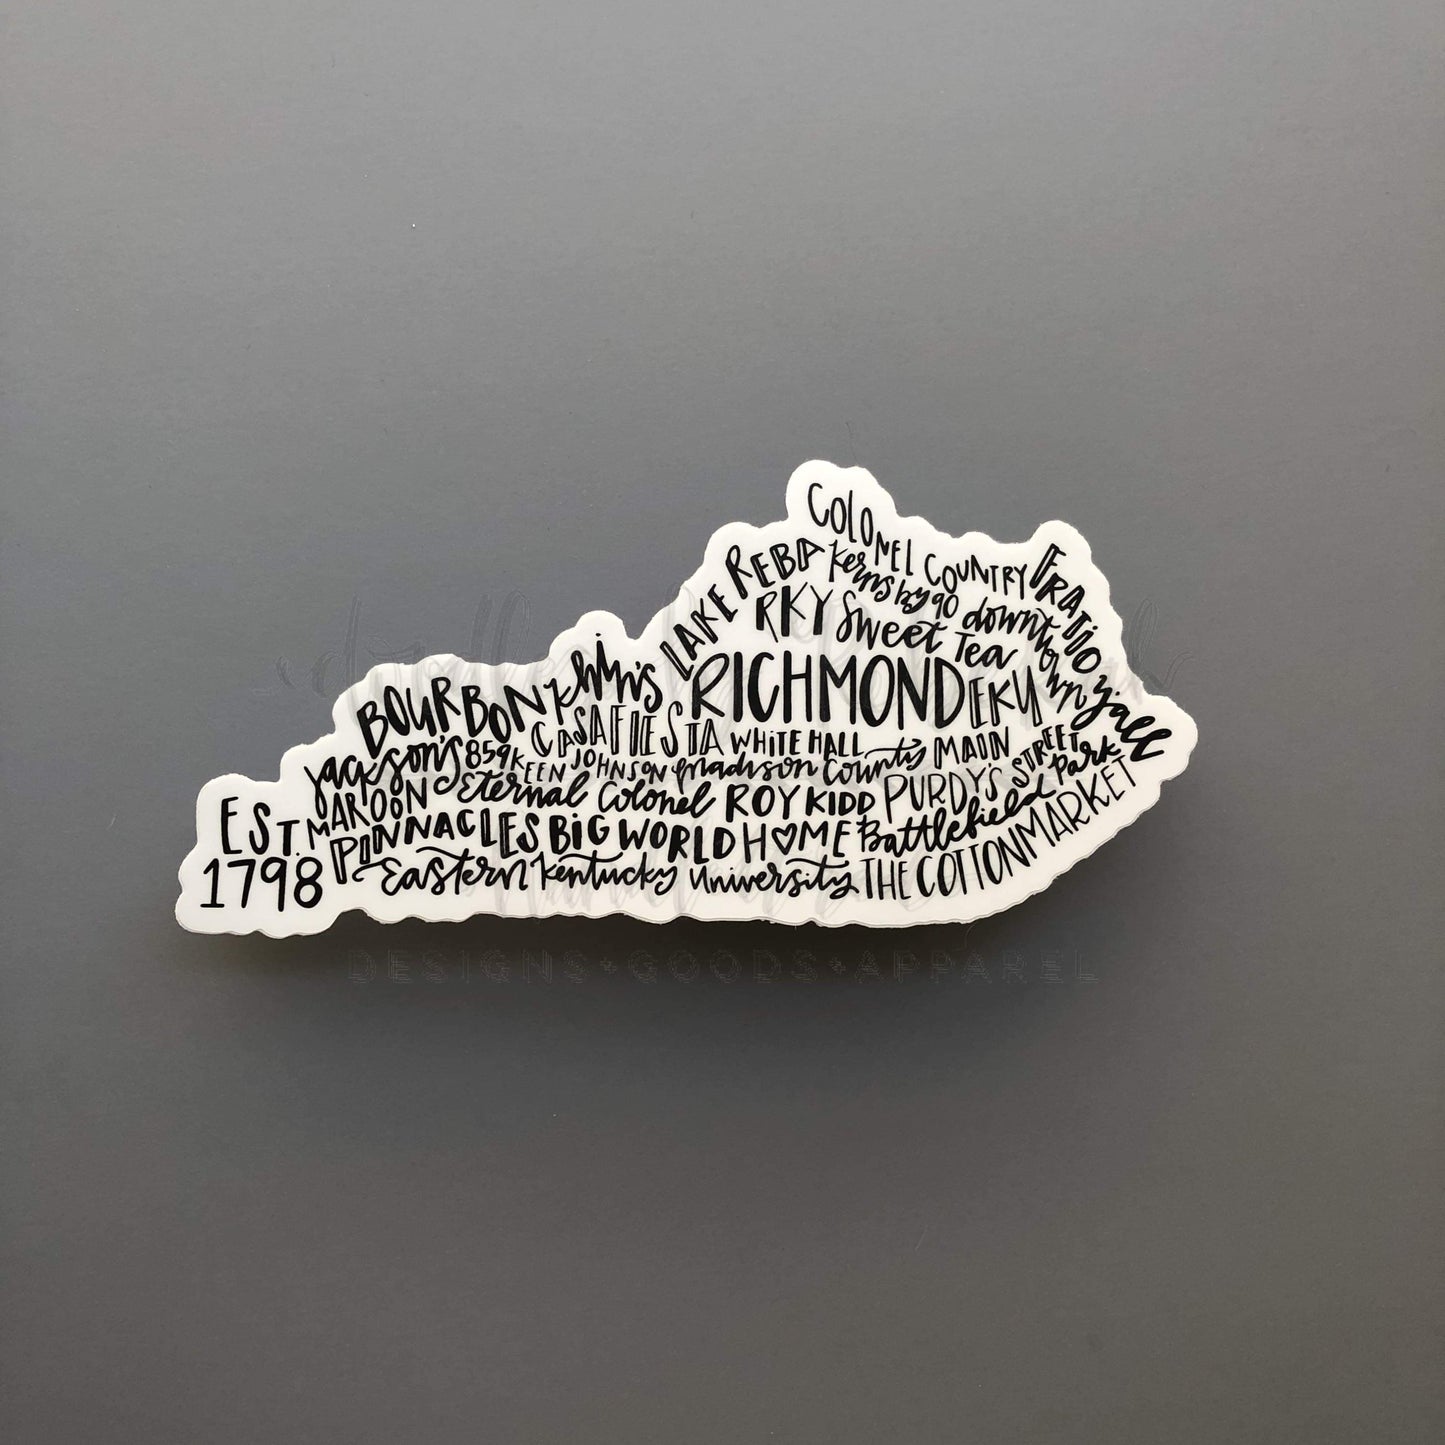 COLONEL COUNTRY
LAKE REBA
Kerns by 90
FRATiOO
RKY
Sweet Tea
downtown
y'all
BOURBON
RICHMOND
EKU
CASA FIESTA
WHITE HALL
MAIN STREET
Jackson's
859
KEEN JOHNSON
Madison County
MAROON
Eternal Colonel
ROY KIDD
PURDY'S
Battlefield Park
EST.
1798
PINNACLES
BiG WORLD
H♡ME
Eastern Kentucky University
THE COTTON MARKET
DESIGNS+GOODS+APPAREL